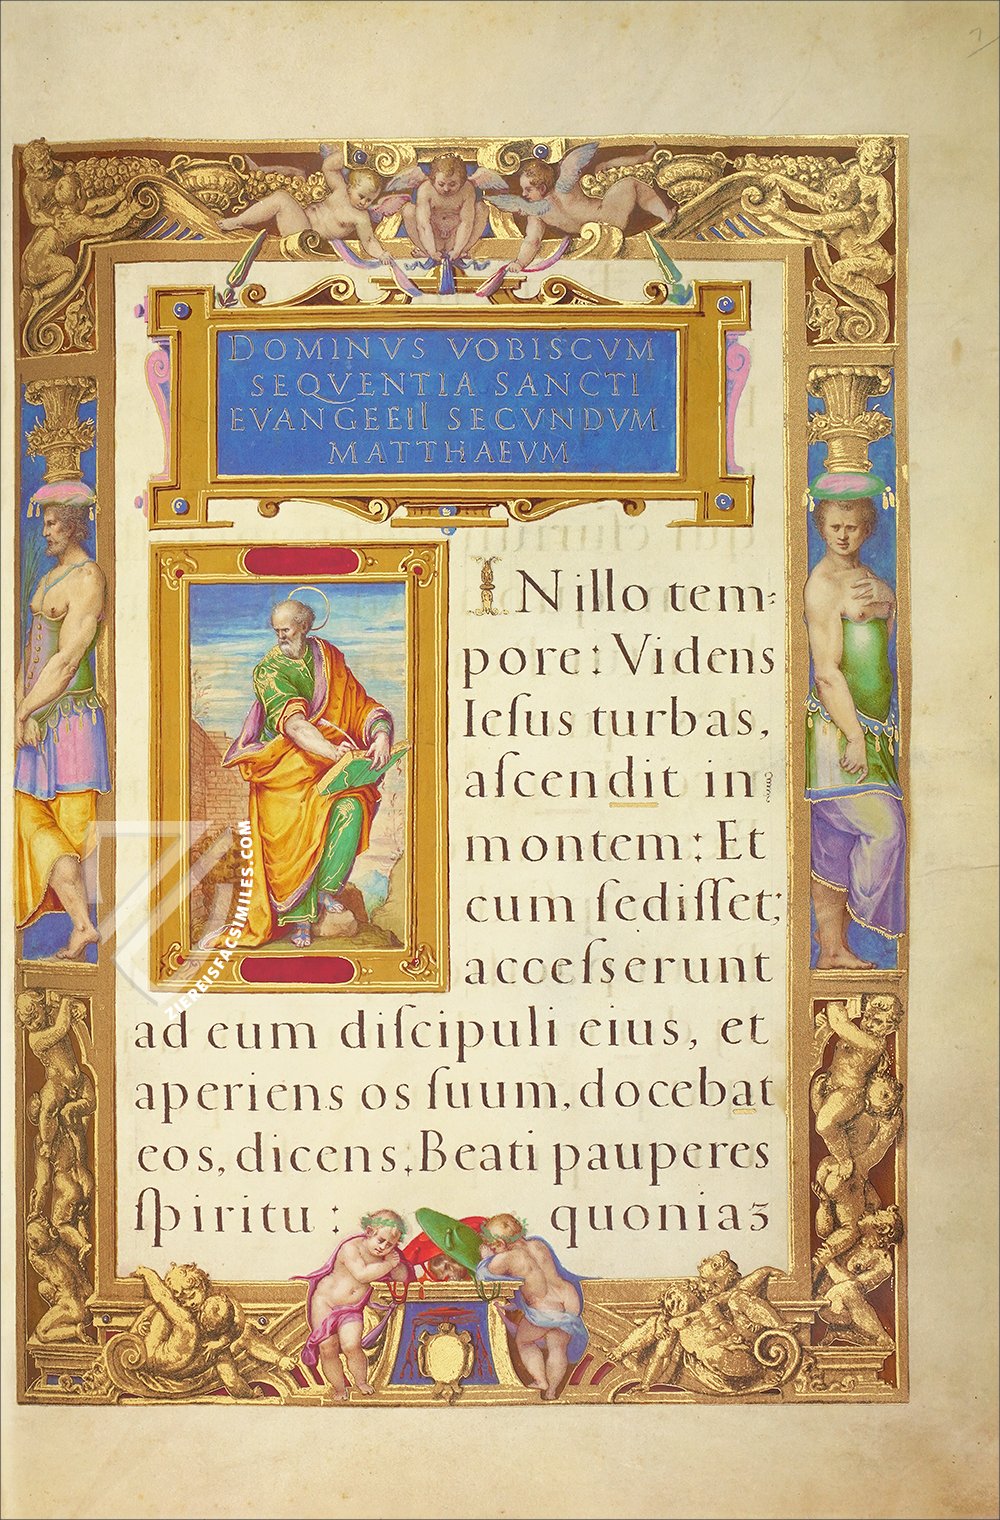 DOMINVS VOBISCVM
SEQVENTIA SANCTI
EVANGEEII SECVNDVM
MATTHAEVM
INillo tem:
pore: Videns
Ieſus turbas,
aſcendit in
montem: Et
cum ſediſſet;
acceſserunt
ad eum diſcipuli eius, et
aperiens os ſuum, docebat
eos, dicens. Beati pauperes
ſpiritu: quoniaʒ
ZIEREISFACSIMILES.COM